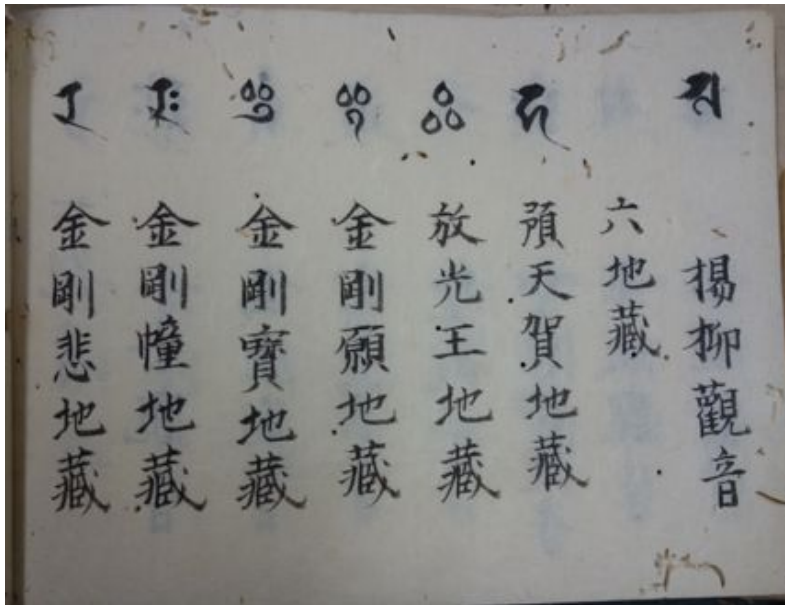 楊柳觀音
六地藏
預天賀地藏
放光王地藏
金剛願地藏
金剛寳地藏
金剛幢地藏
金剛悲地藏